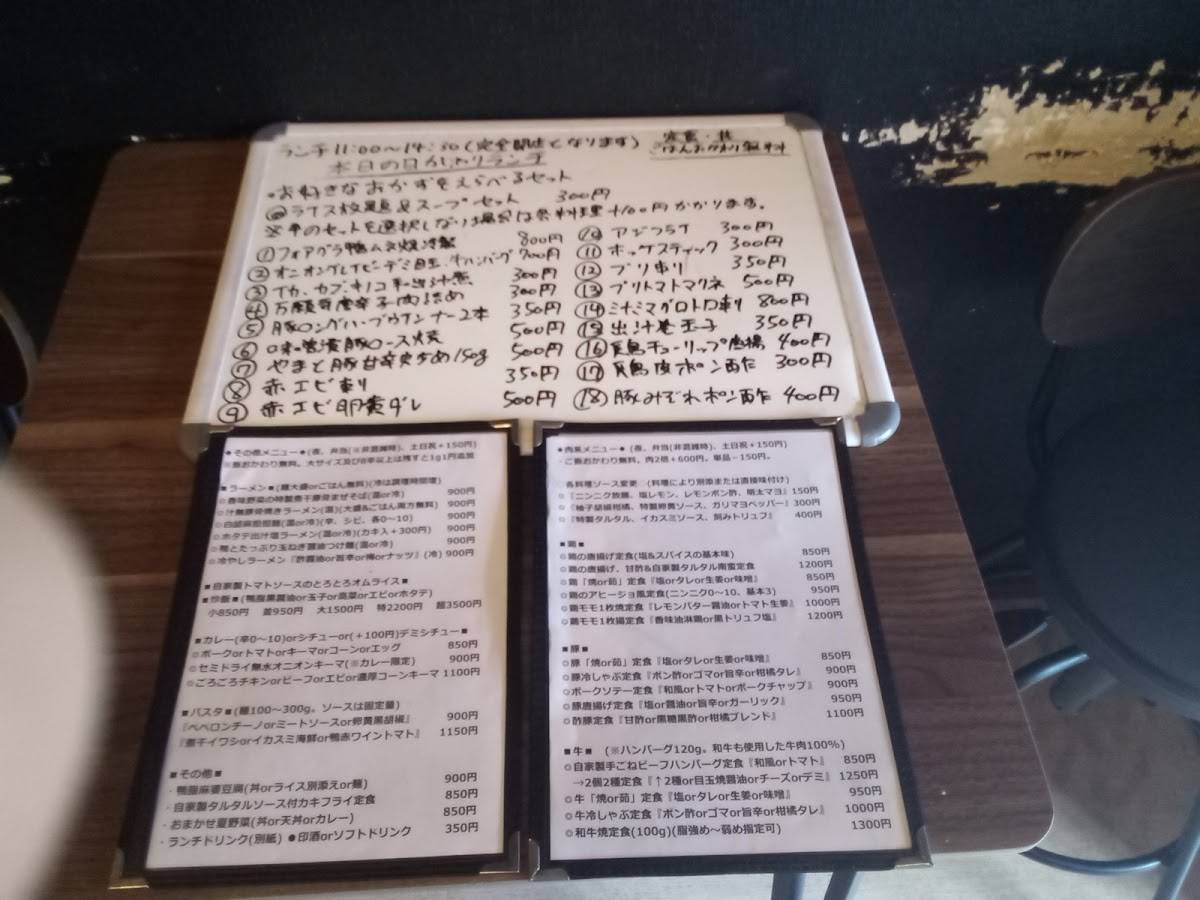 ランチ11:00〜14:30(完全閉店となります)
定食・丼
ごはんおかわり無料
本日の日がわりランチ
・お好きなおかずをえらべるセット
@ライス放題&スープセット 300円
※半のセットを選択しない場合は各料理+100円かかります。
①フォアグラ鴨ムネ燻冷製 800円
②オニオングレイビーデミ目玉、牛ハンバーグ 700円
③イカ、カブ、キノコ和出汁煮 300円
④万願寺唐辛子肉詰め 300円
⑤豚ロングハーブウインナー2本 350円
⑥味噌漬豚ロース焼 500円
⑦やまと豚甘辛炒め150g 500円
⑧赤エビ刺り 350円
⑨赤エビ卵黄ダレ 500円
⑩アジフライ 300円
⑪ホッケスティック 300円
⑫ブリ刺り 350円
⑬ブリトマトマリネ 500円
⑭ミナミマグロトロ刺り 800円
⑮出汁巻玉子 350円
⑯鶏チューリップ唐揚 400円
⑰鶏皮ポン酢 300円
⑱豚みぞれポン酢 400円
●その他メニュー●(夜、弁当(※非混雑時)、土日祝+150円)
※飯おかわり無料。大サイズ及び8辛以上は残すと1g1円追加
■ラーメン■(麺大盛orごはん無料)(冷は調理時間増)
◎香味野菜の特製煮干豚骨まぜそば(温or冷) 900円
◎汁無豚骨焼きラーメン(温)(大盛&ごはん両方無料) 900円
◎白胡麻担担麺(温or冷)(辛、シビ、各0〜10) 900円
◎ホタテ出汁塩ラーメン(温or冷)(カキ入+300円) 900円
◎鴨とたっぷり玉ねぎ醤油つけ麺(温or冷) 900円
◎冷やしラーメン『酢醤油or旨辛or梅orナッツ』(冷) 900円
■自家製トマトソースのとろとろオムライス■
■炒飯■(鴨脂黒醤油or玉子or高菜orエビorホタテ)
小850円 並950円 大1500円 特2200円 超3500円
■カレー(辛0〜10)orシチューor(+100円)デミシチュー■
◎ポークorトマトorキーマorコーンorエッグ 850円
◎セミドライ無水オニオンキーマ(※カレー限定) 900円
◎ごろごろチキンorビーフorエビor濃厚コーンキーマ 1100円
■パスタ■(麺100〜300g。ソースは固定量)
『ペペロンチーノorミートソースor卵黄黒胡椒』 900円
『煮干イワシorイカスミ海鮮or鴨赤ワイントマト』 1150円
■その他■
・鴨脂麻婆豆腐(丼orライス別添えor麺) 900円
・自家製タルタルソース付カキフライ定食 850円
・おまかせ夏野菜(丼or天丼orカレー) 850円
・ランチドリンク(別紙)●印酒orソフトドリンク 350円
●肉系メニュー●(夜、弁当(非混雑時)、土日祝+150円)
・ご飯おかわり無料。肉2倍+600円。単品-150円。
各料理ソース変更 (料理により別添または直接味付け)
◎『ニンニク放題、塩レモン、レモンポン酢、明太マヨ』 150円
◎『柚子胡椒柑橘、特製卵黄ソース、ガリマヨペッパー』 300円
◎『特製タルタル、イカスミソース、刻みトリュフ』 400円
■鶏■
◎鶏の唐揚げ定食(塩&スパイスの基本味) 850円
◎鶏の唐揚げ、甘酢&自家製タルタル南蛮定食 1200円
◎鶏「焼or茹」定食『塩orタレor生姜or味噌』 850円
◎鶏のアヒージョ風定食(ニンニク0〜10、基本3) 950円
◎鶏モモ1枚焼定食『レモンバター醤油orトマト生姜』 1000円
◎鶏モモ1枚揚定食『香味油淋鶏or黒トリュフ塩』 1200円
■豚■
◎豚「焼or茹」定食『塩orタレor生姜or味噌』 850円
◎豚冷しゃぶ定食『ポン酢orゴマor旨辛or柑橘タレ』 900円
◎ポークソテー定食『和風orトマトorポークチャップ』 900円
◎豚唐揚げ定食『塩or醤油or旨辛orガーリック』 950円
◎酢豚定食『甘酢or黒糖黒酢or柑橘ブレンド』 1100円
■牛■ (※ハンバーグ120g。和牛も使用した牛肉100%)
◎自家製手ごねビーフハンバーグ定食『和風orトマト』 850円
→2個2種定食『↑2種or目玉焼醤油orチーズorデミ』 1250円
◎牛「焼or茹」定食『塩orタレor生姜or味噌』 950円
◎牛冷しゃぶ定食『ポン酢orゴマor旨辛or柑橘タレ』 1000円
◎和牛焼定食(100g)(脂強め〜弱め指定可) 1300円